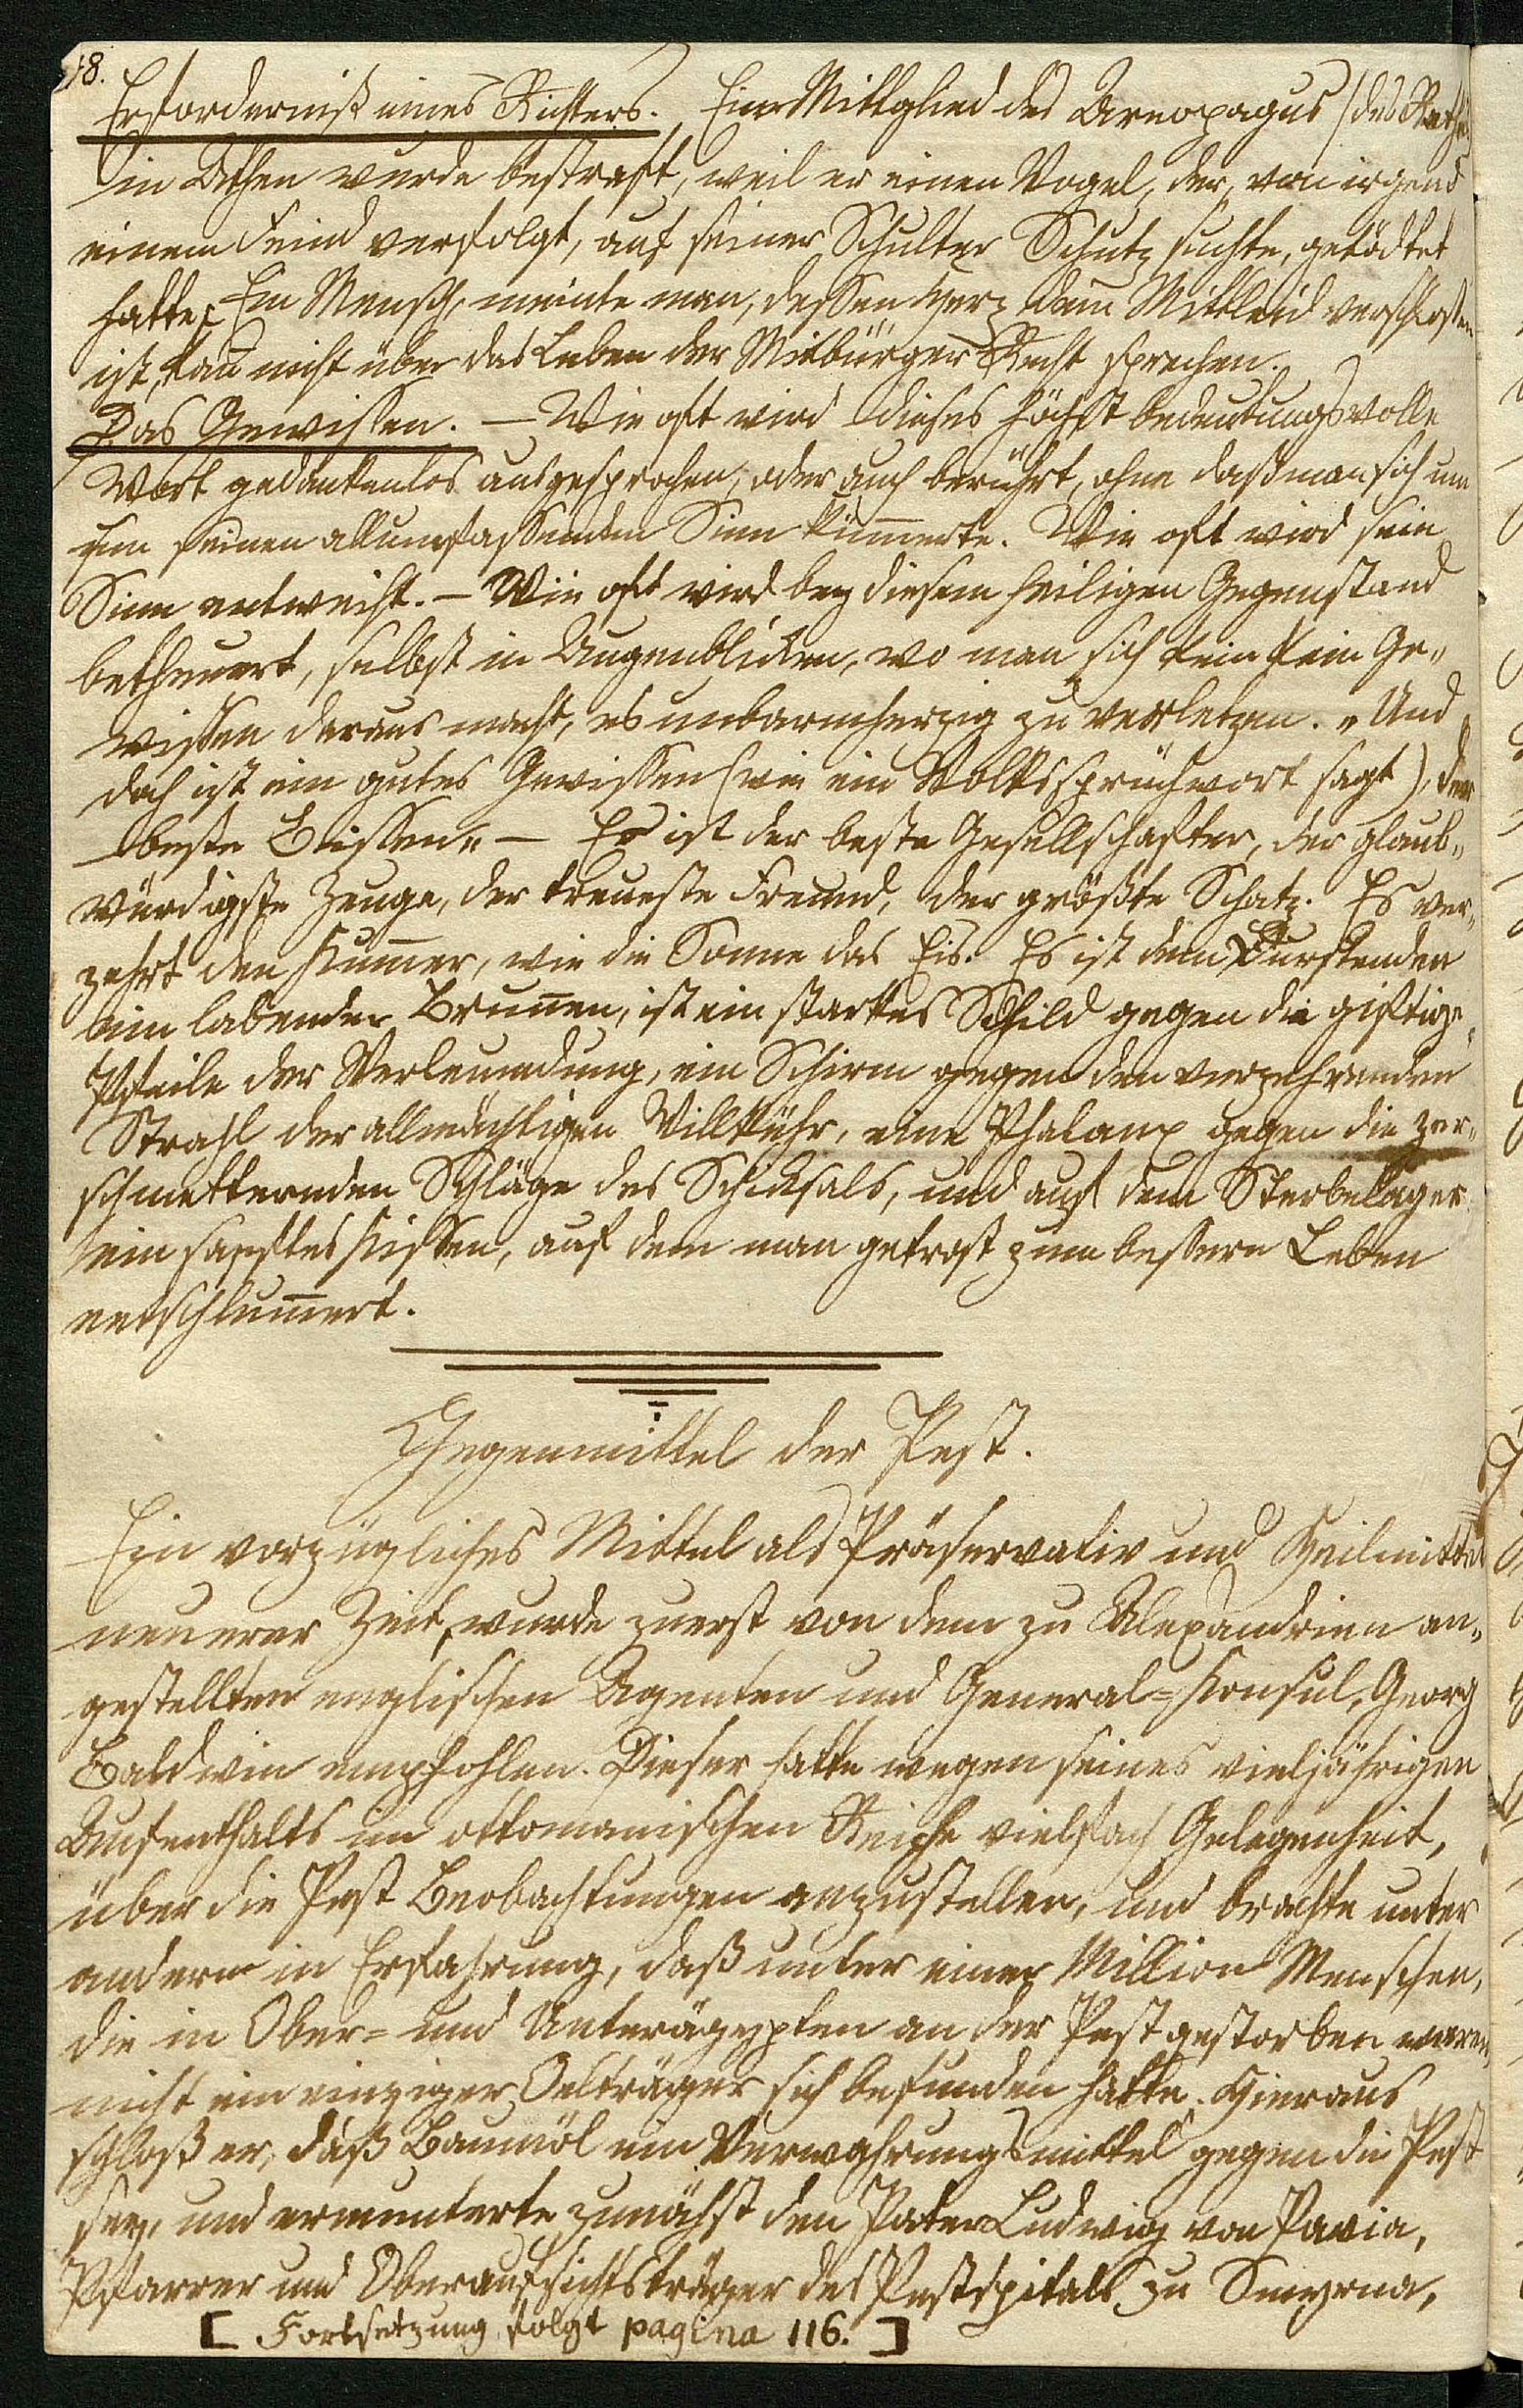 48.
Erforderniß eines Richters. Ein Mittglied des Areopagus (des Raths)
in Athen wurde bestraft, weil er einen Vogel, der, von irgend
einem Feind verfolgt, auf seiner Schulter Schutz suchte, getödtet
hatte; Ein Mensch, meinte man, dessen Herz dem Mittleid verschlossen
ist, kañ nicht über das Leben der Mitbürger Recht sprechen.
Das Gewissen. — Wie oft wird dieses höchst bedeutungsvolle
Wort gedankenlos ausgesprochen, oder auch berührt, ohne daß man sich um
um seinen allumfassenden Sinn kümmerte. Wie oft wird sein
Sinn entweiht. — Wie oft wird bey diesem heiligen Gegenstand
betheuert, selbst in Augenblicken, wo man sich kein kein Ge„
wissen daraus macht, es unbarmherzig zu verletzen. „Und
doch ist ein gutes Gewissen (wie ein Volkssprüchwort sagt), der
beste Bissen“ — Es ist der beste Gesellschafter, der glaub„
würdigste Zeuge, der treueste Freund, der größte Schatz. Es ver„
zehrt den Kum̃er, wie die Sonne das Eis. Es ist dem Durstenden
ein labender Bruñen, ist ein starkes Schild gegen die giftige„
Pfeile der Verleumdung, ein Schirm gegen den verzehrenden
Strahl der allmächtigen Willkühr, eine Phalanx gegen die zer„
schmetternden Schläge des Schicksals, und auf dem Sterbelager
ein sanftes Kissen, auf dem man getrost zum bessern Leben
entschlum̃ert.
Gegenmittel der Pest.
Ein vorzügliches Mittel als Präservativ und Heilmittel
neuerer Zeit, wurde zuerst von dem zu Alexandrien an„
gestellten englischen Agenten und General=Konsul, Georg
Baldwin empfohlen. Dieser hatte wegen seines vieljährigen
Aufenthalts im ottomanischen Reiche vielfach Gelegenheit,
über die Pest Beobachtungen anzustellen, und brachte unter
andern in Erfahrung, daß unter einer Million Menschen,
die in Ober= und Unterägypten an der Pest gestorben waren,
nicht ein einziger Oelträger sich befunden hatte. Hieraus
schloß er, daß Baumöl ein Verwahrungsmittel gegen die Pest
sey, und ermunterte zunächst den Pater Ludwig von Pavia,
Pfarrer und Oberaufsichtsträger des Pestspitals zu Smyrna,
[ Fortsetzung folgt pagina 116. ]